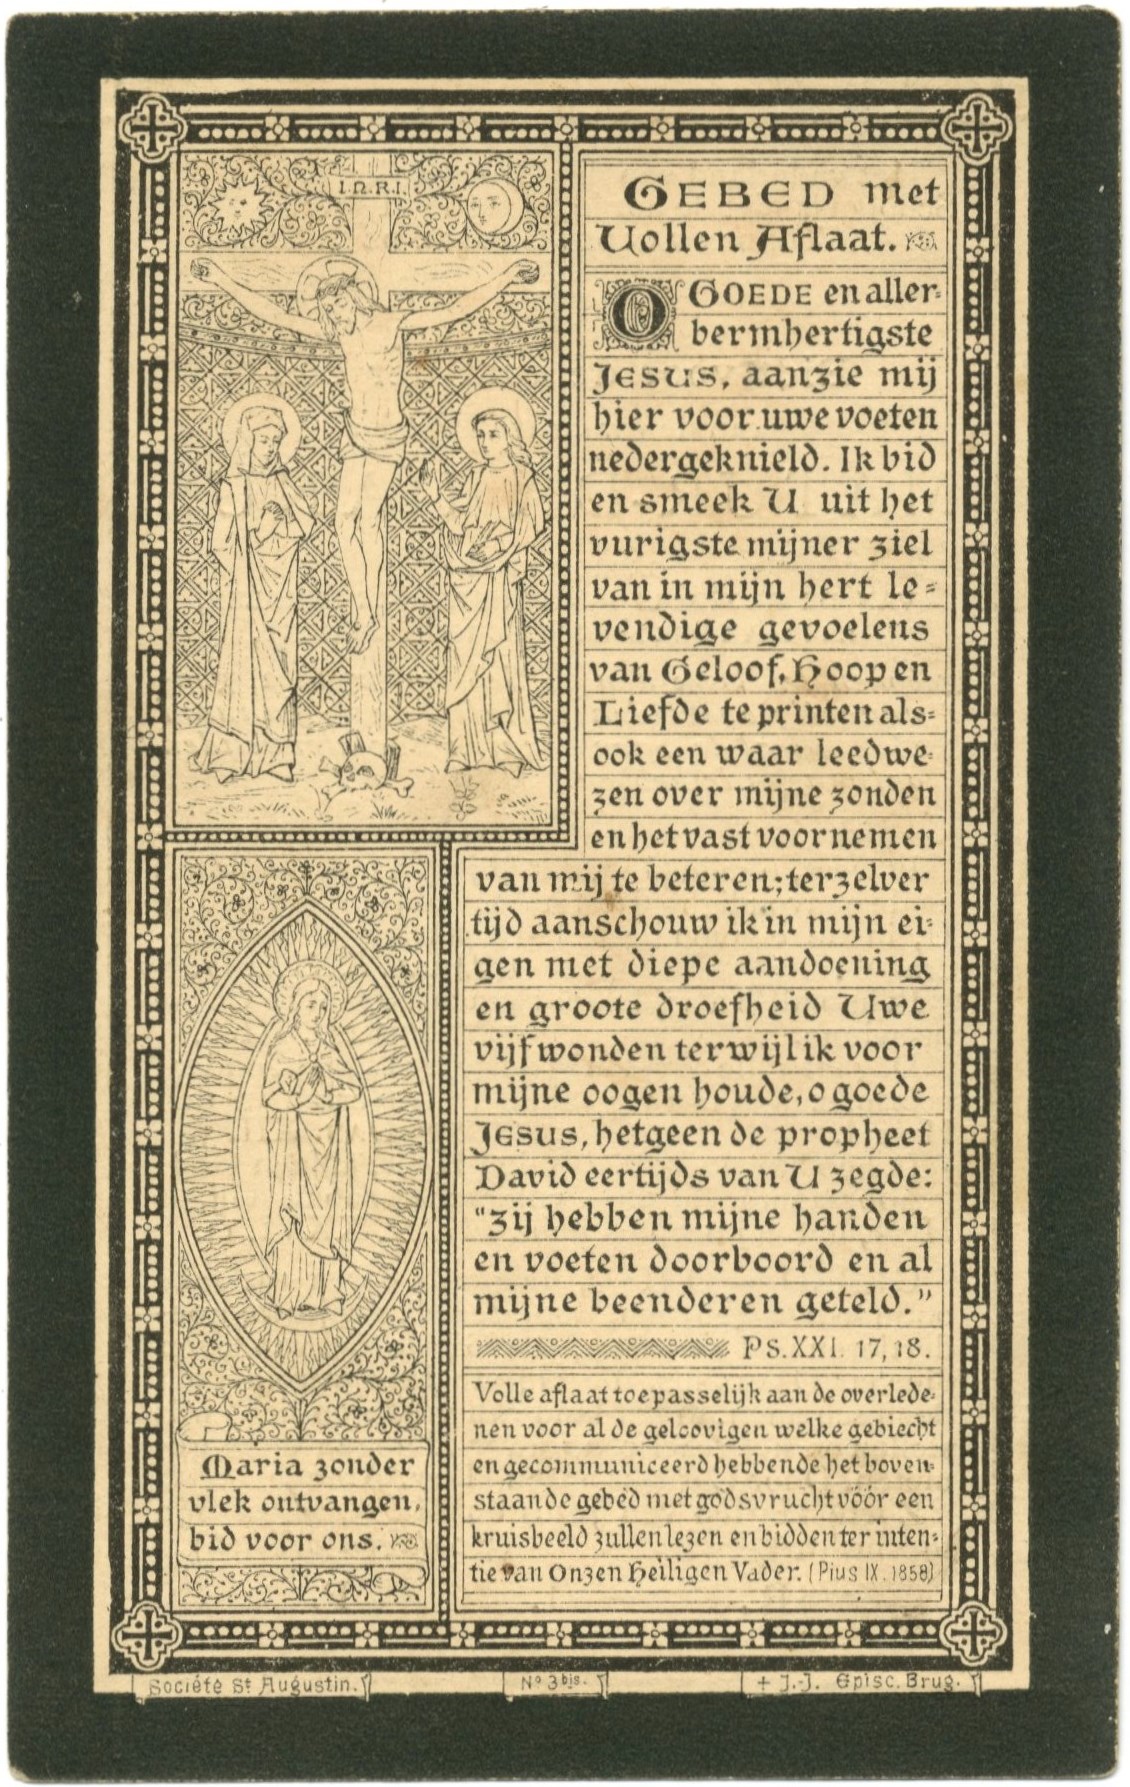 I.N.R.I.
GEBED met
Vollen Aflaat.
O GOEDE en aller-
bermhertigste
JESUS, aanzie mij
hier voor uwe voeten
nedergeknield. Ik bid
en smeek U uit het
vurigste mijner ziel
van in mijn hert le-
vendige gevoelens
van Geloof, Hoop en
Liefde te printen als-
ook een waar leedwe-
zen over mijne zonden
en het vast voornemen
van mij te beteren; terzelver
tijd aanschouw ik in mijn ei-
gen met diepe aandoening
en groote droefheid Uwe
vijf wonden terwijl ik voor
mijne oogen houde, o goede
JESUS, hetgeen de propheet
David eertijds van U zegde:
"Zij hebben mijne handen
en voeten doorboord en al
mijne beenderen geteld."
Ps. XXI. 17, 18.
Volle aflaat toepasselijk aan de overlede-
nen voor al de geloovigen welke gebiecht
en gecommuniceerd hebbende het boven-
staande gebed met godsvrucht vóór een
kruisbeeld zullen lezen en bidden ter inten-
tie van Onzen Heiligen Vader. (Pius IX. 1858)
Maria zonder
vlek ontvangen,
bid voor ons.
Société St Augustin.
No 3bis.
+ J.-J. Episc. Brug.